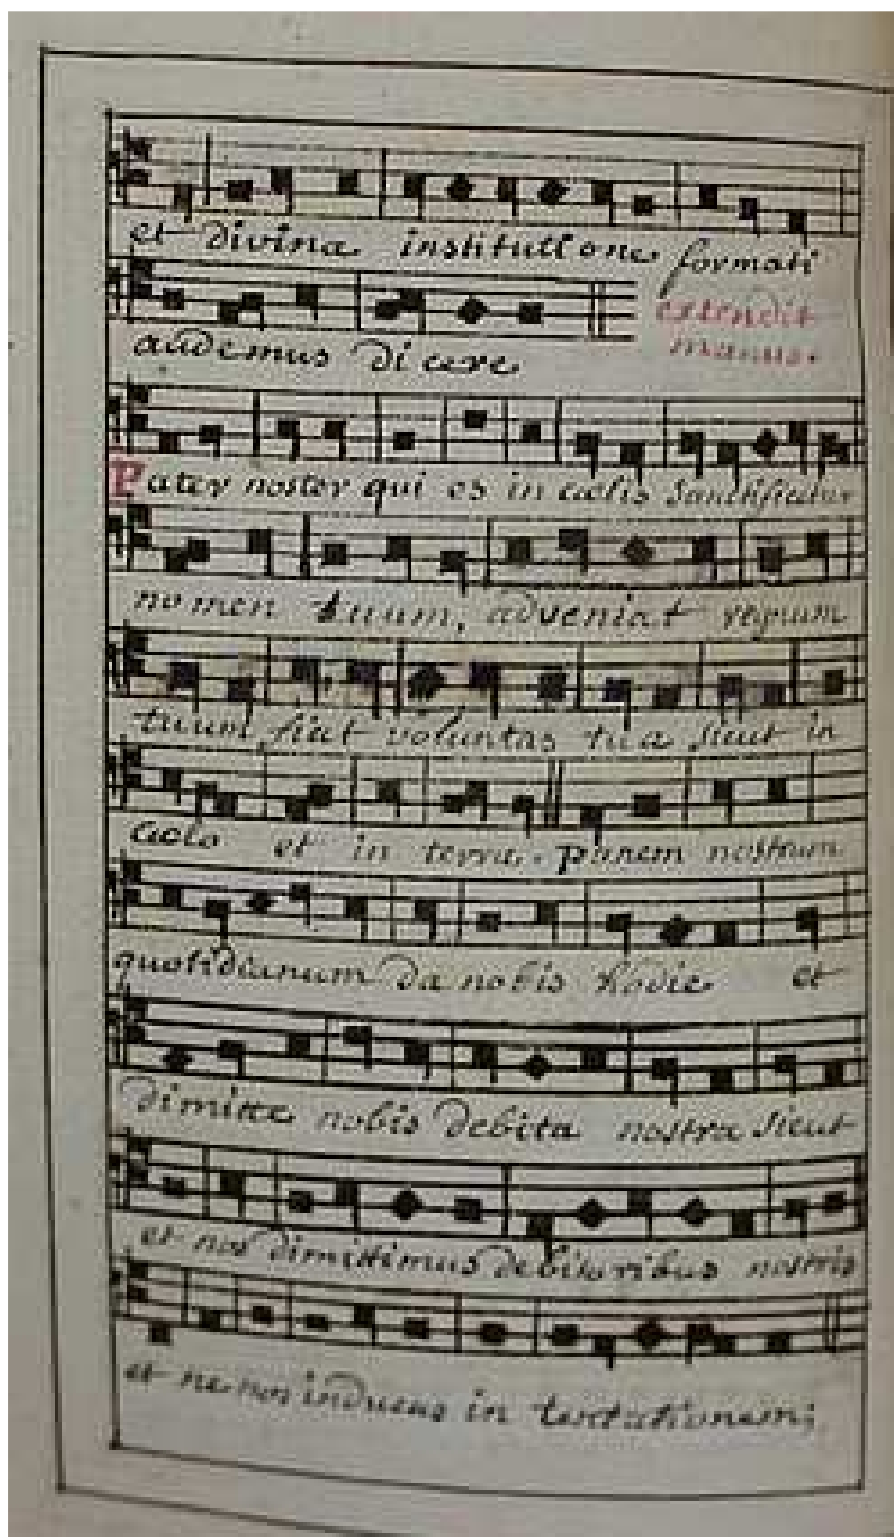 et divina institutione formati
audemus dicere extendit
manus.
Pater noster qui es in cœlis Sanctificetur
nomen tuum, adveniat regnum
tuum, fiat voluntas tua sicut in
cœlo et in terra. panem nostrum
quotidianum da nobis hodie et
dimitte nobis debita nostra sicut
et nos dimittimus debitoribus nostris
et ne nos inducas in tentationem;